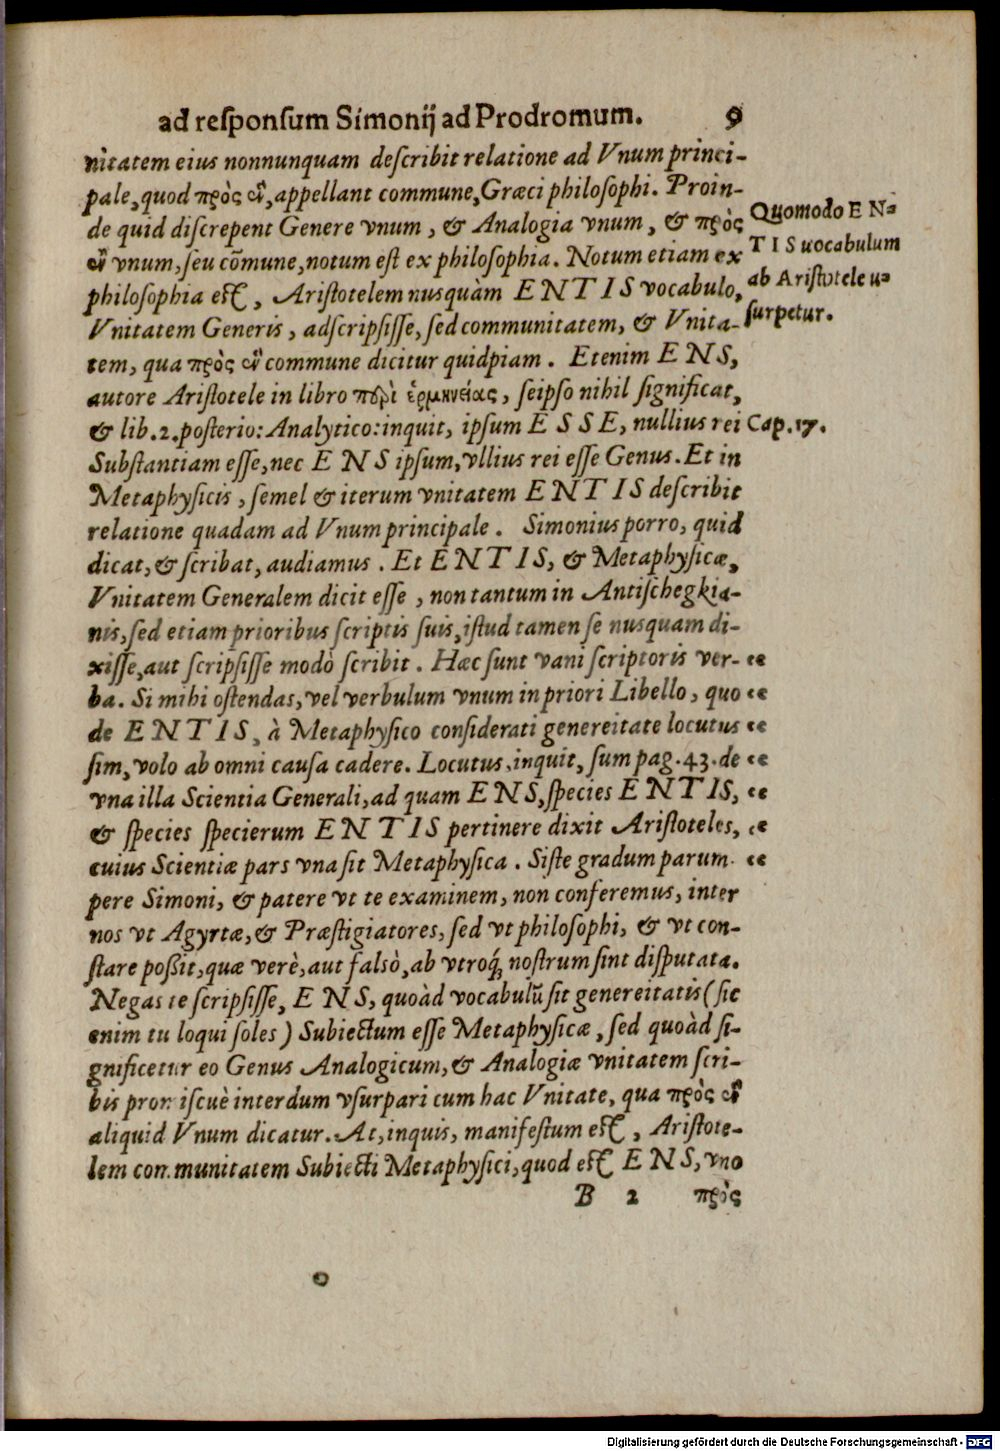 ad reſponſum Simonij ad Prodromum. 9
nitatem eius nonnunquam deſcribit relatione ad Vnum princi-
pale, quod πρὸς ἓν, appellant commune, Græci philoſophi. Proin-
de quid diſcrepent Genere vnum, & Analogia vnum, & πρὸς
ἓν vnum, ſeu cõmune, notum eſt ex philoſophia. Notum etiam ex
philoſophia eſt, Ariſtotelem nusquàm ENTIS vocabulo,
Vnitatem Generis, adſcripſiſſe, ſed communitatem, & Vnita-
tem, qua πρὸς ἓν commune dicitur quidpiam. Etenim ENS,
autore Ariſtotele in libro περὶ ἑρμηνείας, ſeipſo nihil ſignificat,
& lib.2.poſterio: Analytico: inquit, ipſum ESSE, nullius rei
Subſtantiam eſſe, nec ENS ipſum, vllius rei eſſe Genus. Et in
Metaphyſicis, ſemel & iterum vnitatem ENTIS deſcribit
relatione quadam ad Vnum principale. Simonius porro, quid
dicat, & ſcribat, audiamus. Et ENTIS, & Metaphyſicæ,
Vnitatem Generalem dicit eſſe, non tantum in Antiſchegkia-
nis, ſed etiam prioribus ſcriptis ſuis, iſtud tamen ſe nusquam di-
xiſſe, aut ſcripſiſſe modò ſcribit. Hæc ſunt vani ſcriptoris ver- “
ba. Si mihi oſtendas, vel verbulum vnum in priori Libello, quo “
de ENTIS, à Metaphyſico conſiderati genereitate locutus “
ſim, volo ab omni cauſa cadere. Locutus, inquit, ſum pag.43.de “
vna illa Scientia Generali, ad quam ENS, ſpecies ENTIS, “
& ſpecies ſpecierum ENTIS pertinere dixit Ariſtoteles, “
cuius Scientiæ pars vna ſit Metaphyſica. Siſte gradum parum “
pere Simoni, & patere vt te examinem, non conferemus, inter
nos vt Agyrtæ, & Præſtigiatores, ſed vt philoſophi, & vt con-
ſtare poßit, quæ verè, aut falsò, ab vtroq́; noſtrum ſint diſputata.
Negas te ſcripſiſſe, ENS, quoàd vocabulũ ſit genereitatis (ſic
enim tu loqui ſoles) Subiectum eſſe Metaphyſicæ, ſed quoàd ſi-
gnificetur eo Genus Analogicum, & Analogiæ vnitatem ſcri-
bis promiscuè interdum vſurpari cum hac Vnitate, qua πρὸς ἓν
aliquid Vnum dicatur. At, inquis, manifeſtum eſt, Ariſtote-
lem communitatem Subiecti Metaphyſici, quod eſt ENS, vno
B 2 πρὸς
Quomodo EN-
TIS uocabulum
ab Ariſtotele u-
ſurpetur.
Cap.17.
Digitalisierung gefördert durch die Deutsche Forschungsgemeinschaft - DFG